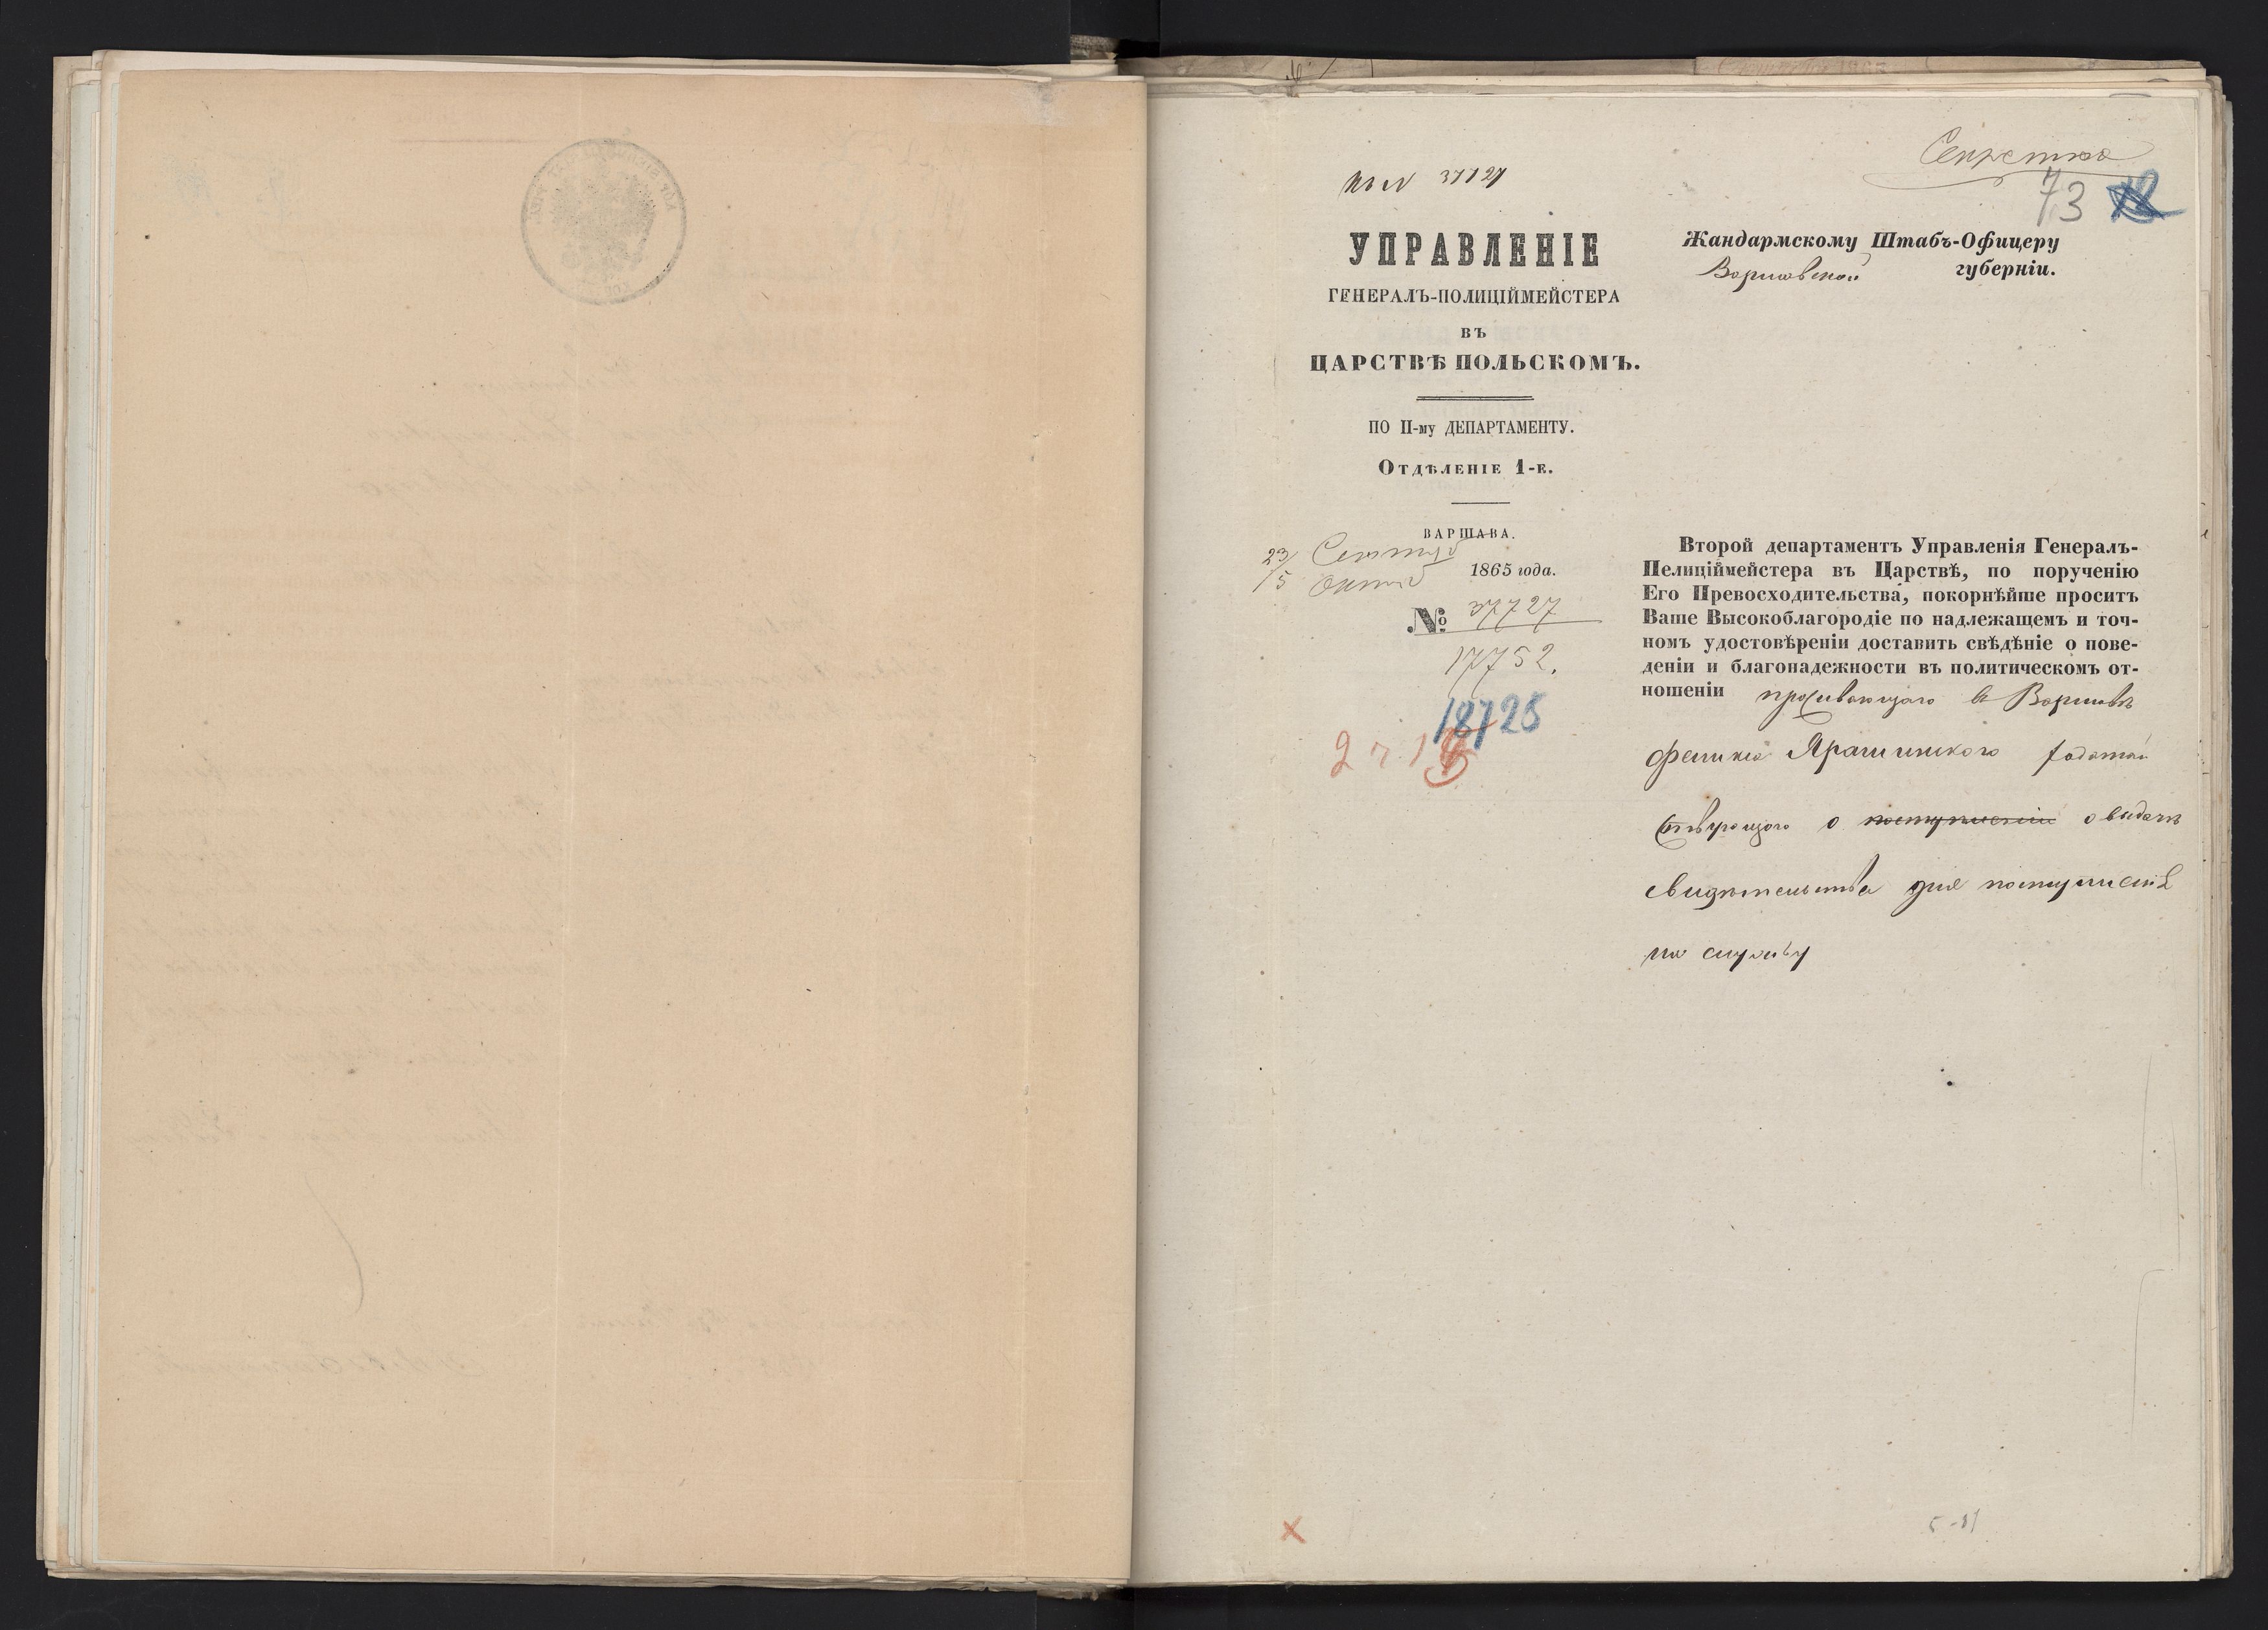 Секретно
къ № 37727
73
УПРАВЛЕНІЕ
ГЕНЕРАЛЪ-ПОЛИЦІЙМЕЙСТЕРА
ВЪ
ЦАРСТВѢ ПОЛЬСКОМЪ.
ПО II-му ДЕПАРТАМЕНТУ.
Отдѣленіе 1-е.
ВАРШАВА.
23/5 Сентяб
Октяб 1865 года.
№ 37727
17752.
18725
Жандармскому Штабъ-Офицеру
Варшавской губерніи.
Второй департаментъ Управленія Генералъ-
Пелиціймейстера въ Царствѣ, по порученію
Его Превосходительства, покорнѣйше проситъ
Ваше Высокоблагородіе по надлежащемъ и точ-
номъ удостовѣреніи доставить свѣдѣніе о пове-
деніи и благонадежности въ политическомъ от-
ношеніи проживающаго в Варшавѣ
Феликса Ярашинского ходатай
ствующаго о поступленіи о выдачѣ
свидѣтельства для поступленія
на службу